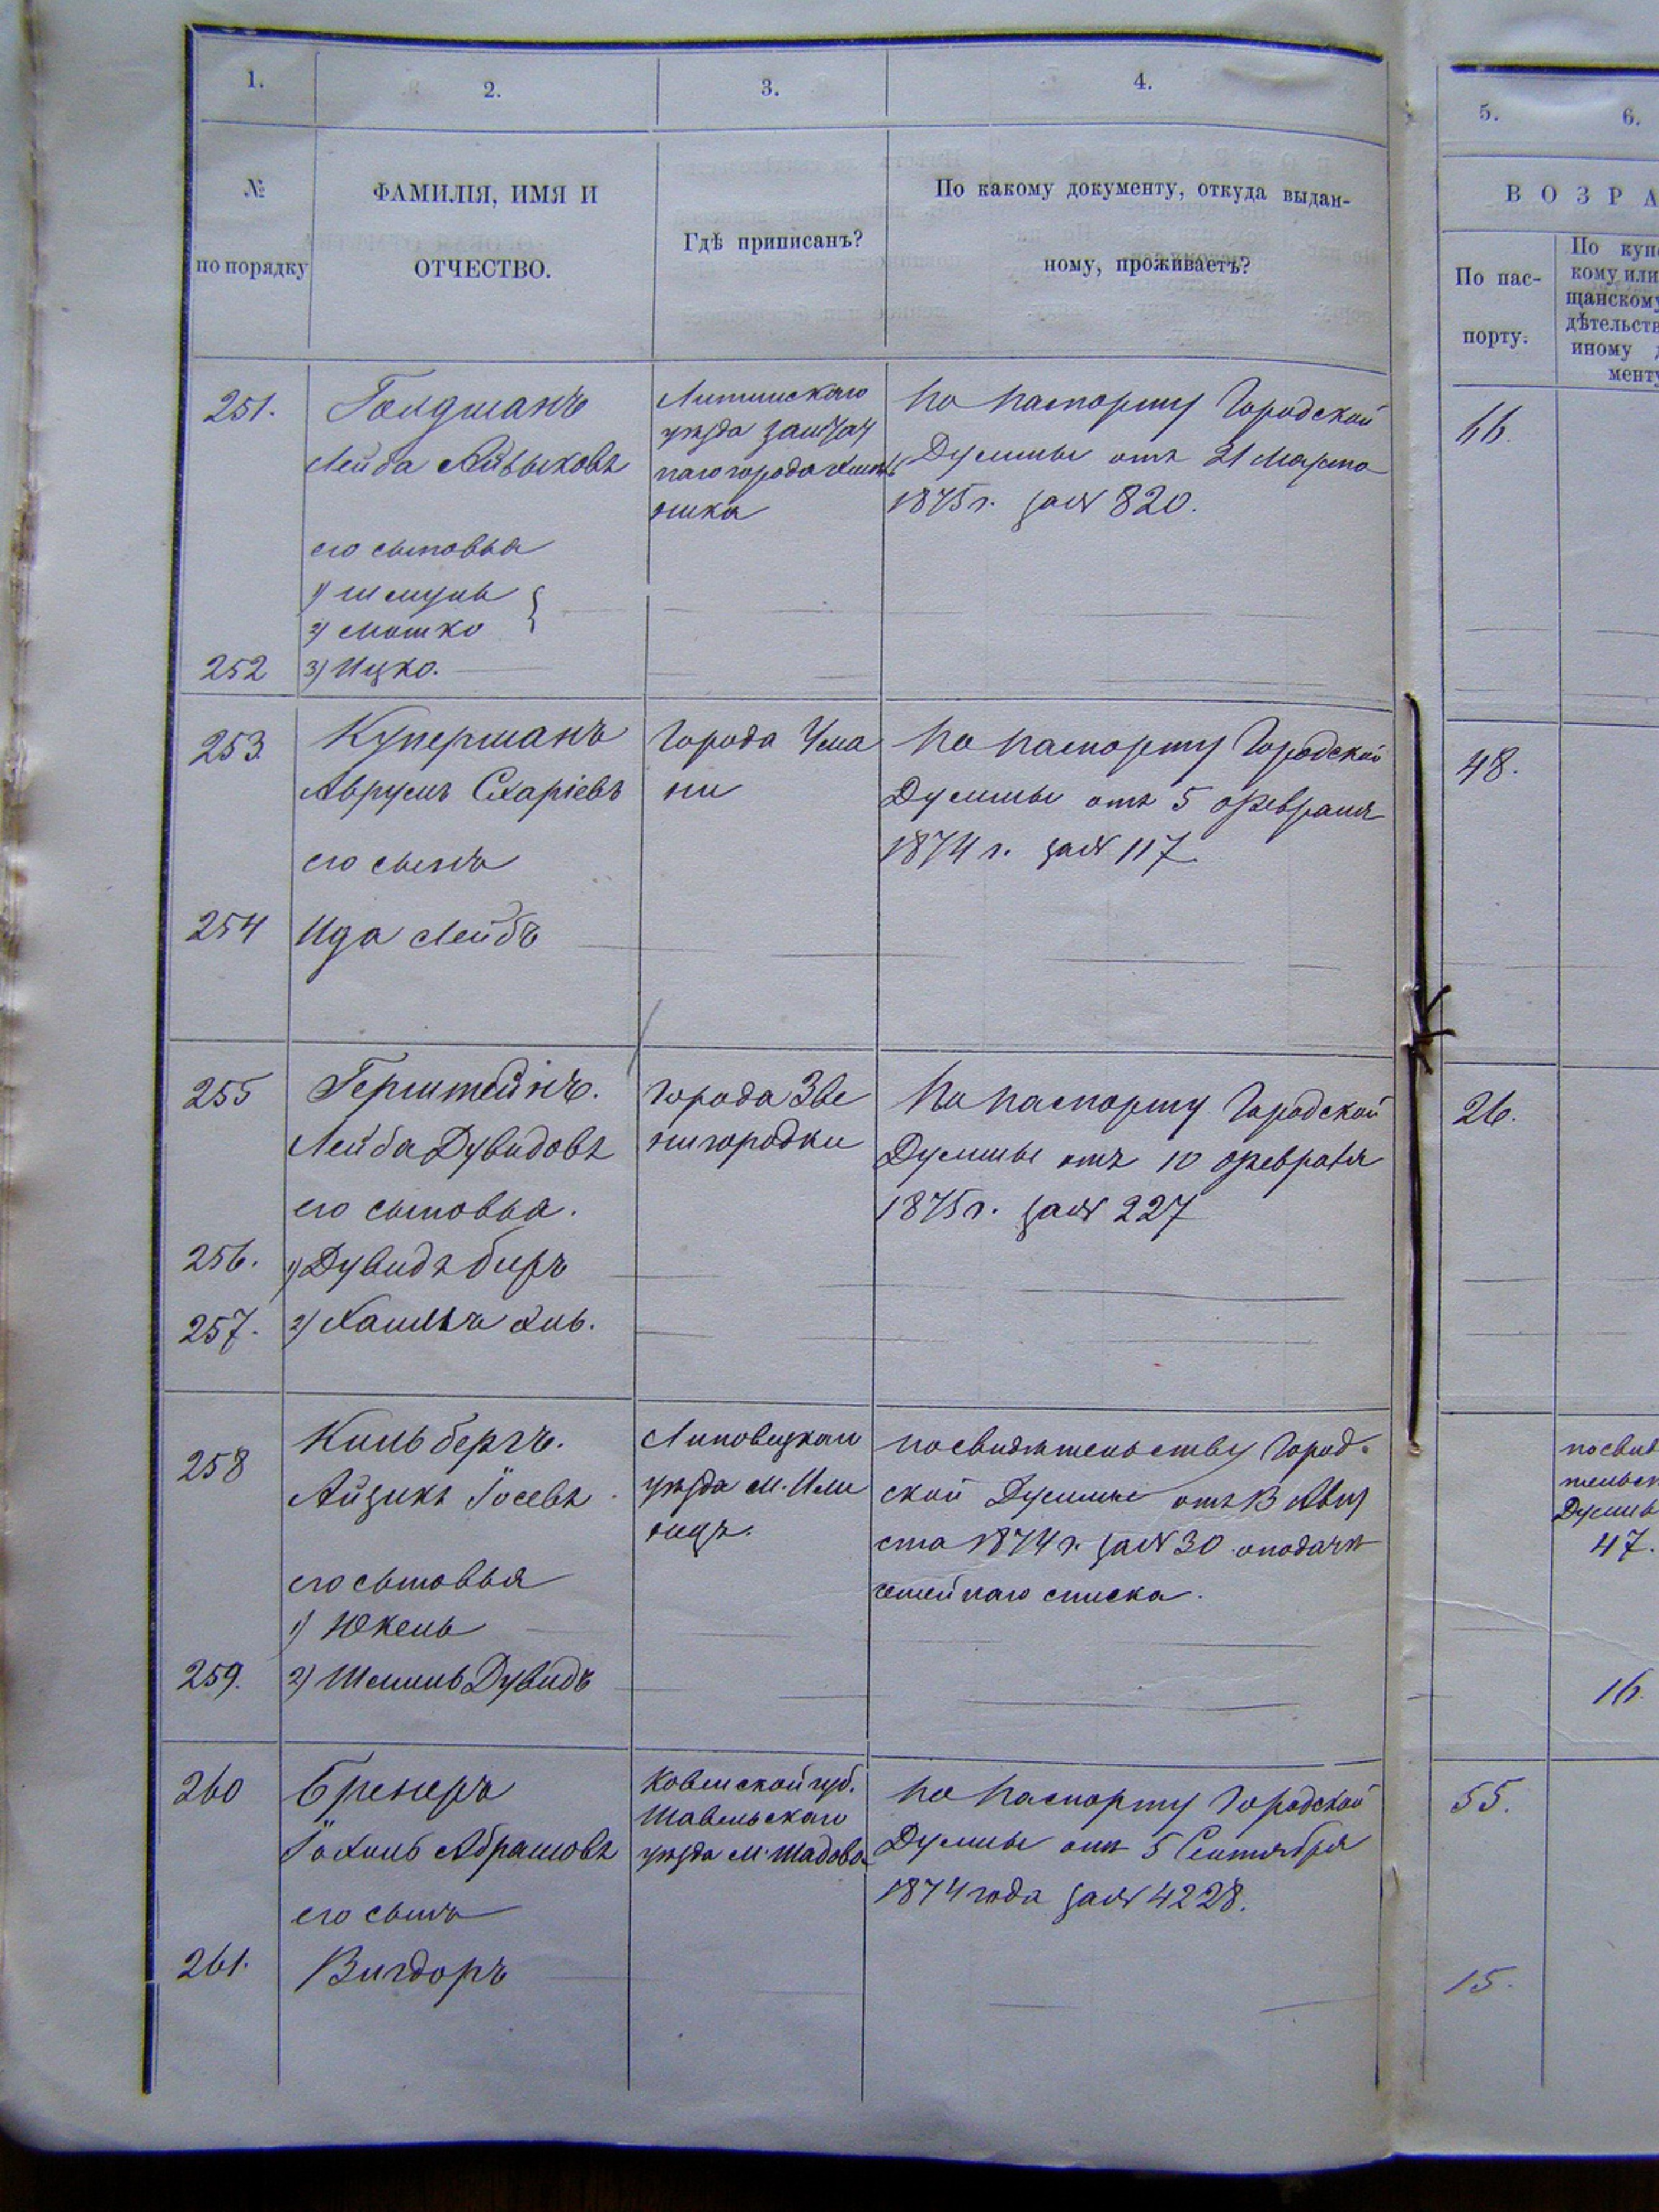 1.
2.
3.
4.
5.
6.
№
по порядку
ФАМИЛІЯ, ИМЯ И
ОТЧЕСТВО.
Гдѣ приписанъ?
По какому документу, откуда выдан-
ному, проживаетъ?
ВОЗРА
По пас-
порту.
По куп
кому или
щанскому
дѣтельств
иному
менту
251.
Голдманъ
Лейба Айзыковъ
его сыновья
1) Шмуль
2) Мошко
252
3) Ицко.
Литинскаго
уѣзда заштат
наго города Хмѣль
ника
По паспорту Городской
Думмы отъ 21 Марта
1875 г. за № 820.
66.
253.
Куперманъ
Аврумъ Схаріевъ
его сынъ
254
Ида Лейбъ
Города Ума
ни
По паспорту Городской
Думмы отъ 5 Февраля
1874 г. за № 117
48.
255
Герштейнъ.
Лейба Дувидовъ
его сыновья.
256.
1) Дувидъ беръ
257.
2) Хаимъ
Города Зве
нигородки
По паспорту Городской
Думмы отъ 10 Февраля
1875 г. за № 227
26.
258
Кильбергъ.
Айзикъ Іосевъ
его сыновья
1) Юкель
259.
2) Шмиль Дувидъ
Липовецкаго
уѣзда м. Или
нецъ.
по свидѣтельству Город-
ской Думмы отъ 13 Авгу
ста 1874 г. за № 30 о подачѣ
семейнаго списка.
по свид
тельст
Думмы
47.
16.
260
Бренеръ
Іохиль Абрамовъ
его сынъ
261.
Вигдоръ
Ковенской губ.
Шавельскаго
уѣзда м. Шадова
По паспорту Городской
Думмы отъ 5 Сентября
1874 года за № 4228.
55.
15.